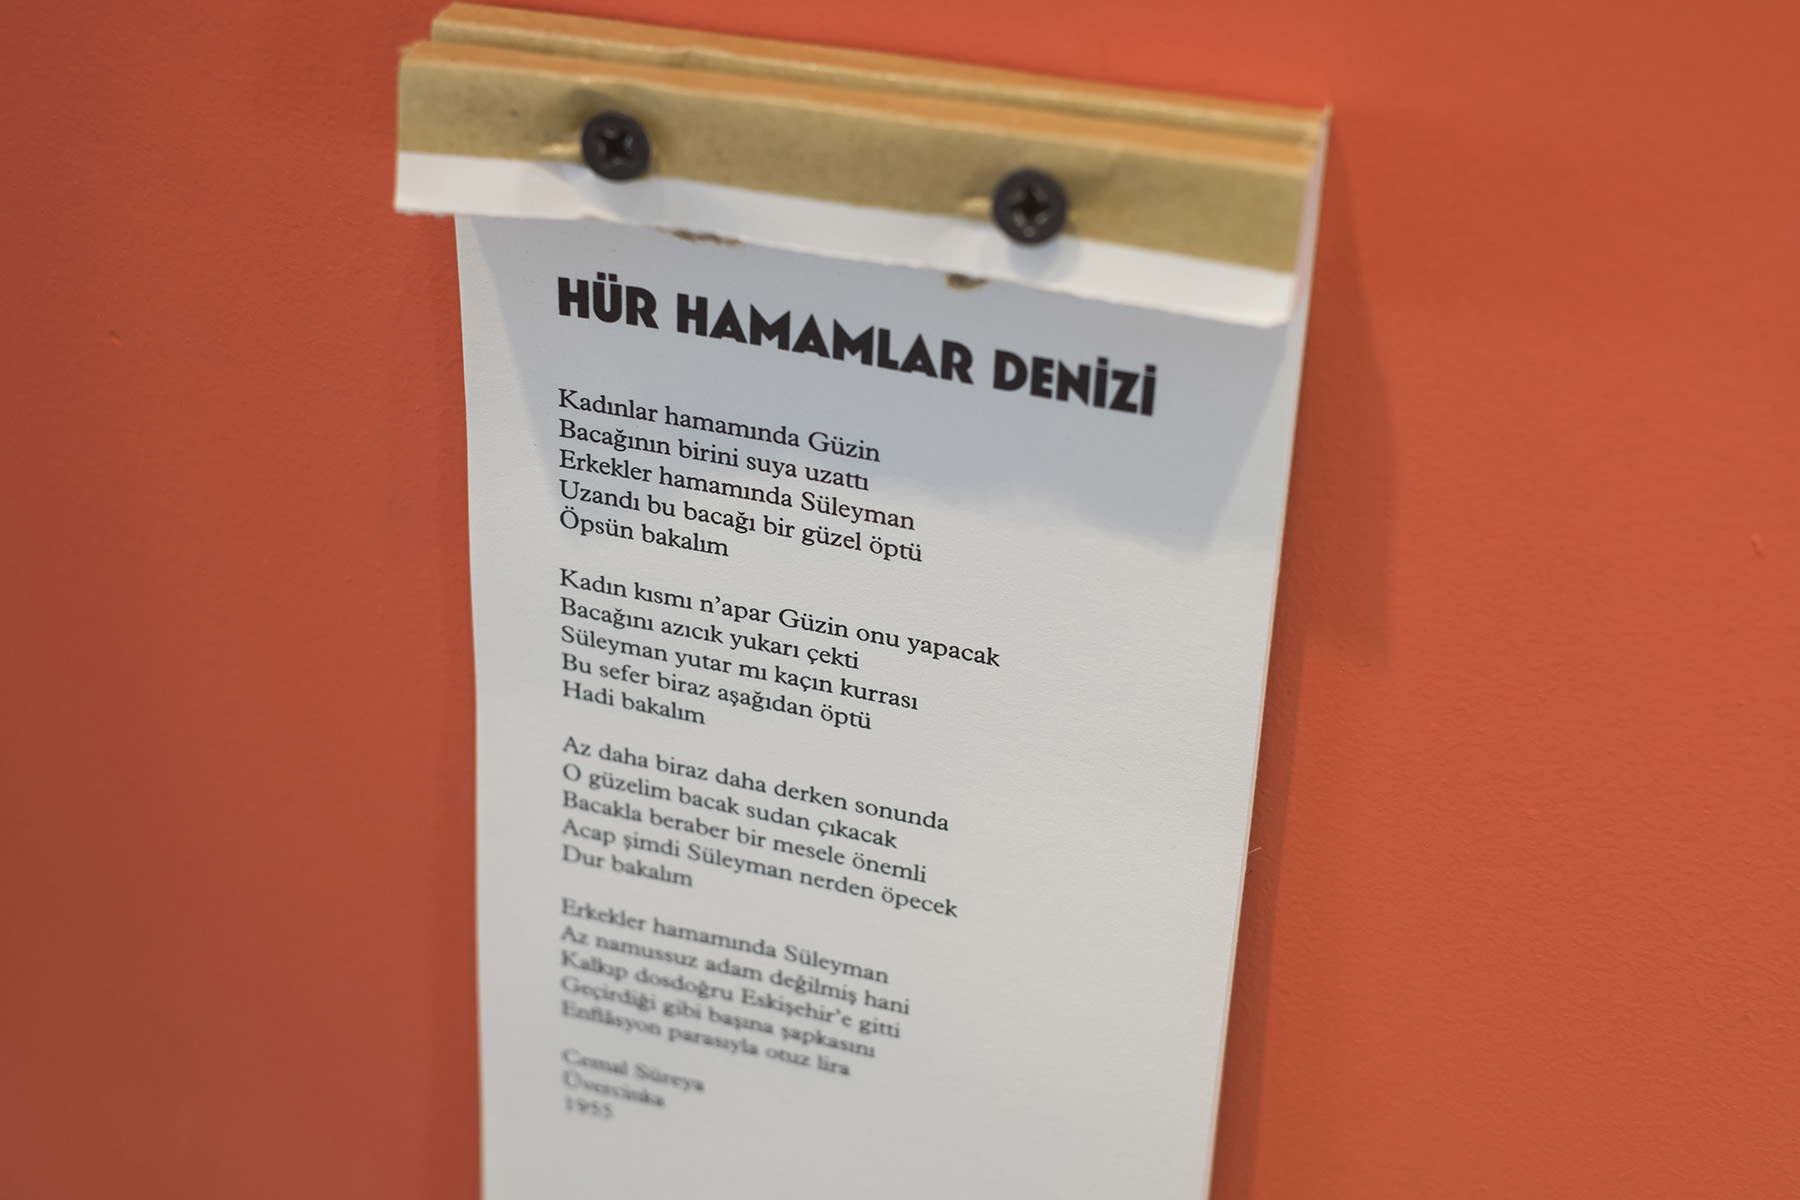 HÜR HAMAMLAR DENİZİ
Kadınlar hamamında Güzin
Bacağının birini suya uzattı
Erkekler hamamında Süleyman
Uzandı bu bacağı bir güzel öptü
Öpsün bakalım
Kadın kısmı n’apar Güzin onu yapacak
Bacağını azıcık yukarı çekti
Süleyman yutar mı kaçın kurrası
Bu sefer biraz aşağıdan öptü
Hadi bakalım
Az daha biraz daha derken sonunda
O güzelim bacak sudan çıkacak
Bacakla beraber bir mesele önemli
Acap şimdi Süleyman nerden öpecek
Dur bakalım
Erkekler hamamında Süleyman
Az namussuz adam değilmiş hani
Kalkıp dosdoğru Eskişehir’e gitti
Geçirdiği gibi başına şapkasını
Enflâsyon parasıyla otuz lira
Cemal Süreya
Üvercinka
1955